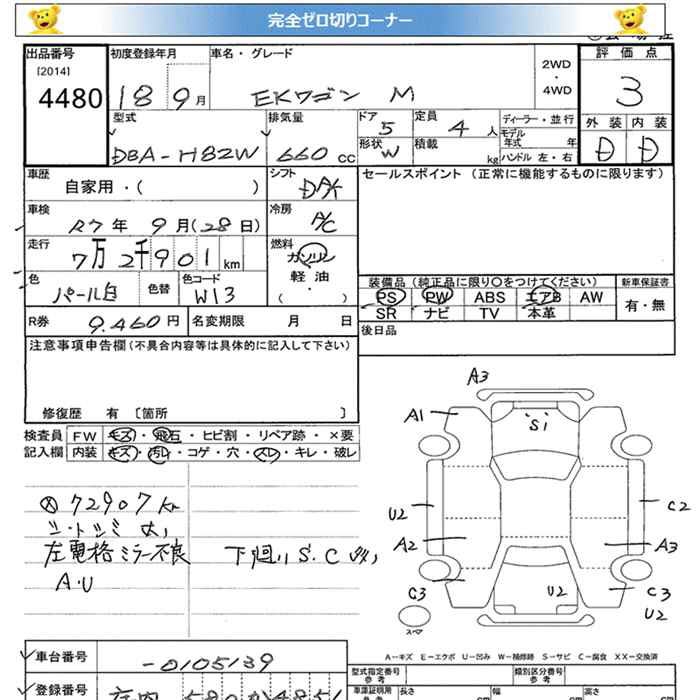 完全ゼロ切りコーナー
出品番号
[2014]
4480
初度登録年月
18 9月
車名・グレード
EKワゴン M
2WD
・
4WD
評価点
3
外装 内装
D D
型式
DBA-H82W
排気量
660 CC
ドア
5
形状
W
定員
4 人
積載
kg
ディーラー・並行
モデル年式 年
ハンドル 左・右
車歴
自家用・( )
シフト
DAK
セールスポイント (正常に機能するものに限ります)
車検
R7年 9月(28日)
冷房
A/C
走行
7万2千901 km
燃料
ガソリン
軽油
( ・ )
色
パール白
色替
色コード
W13
装備品(純正品に限り〇をつけてください)
PS PW ABS エアB AW
SR ナビ TV 本革
新車保証書
有・無
R券 9.460円
名変期限 月 日
後日品
注意事項申告欄(不具合内容等は具体的に記入して下さい)
修復歴 有 〔箇所 〕
検査員記入欄
FW キズ・飛石・ヒビ割・リペア跡・×要
内装 キズ・汚レ・コゲ・穴・スレ・キレ・破レ
72907 Km
シートシミ 大
左電格ミラー不良
下廻り S.C
A.U
A3
A1
S1
U2
C2
A2
A3
C3
U2
C3
U2
スペア
A-キズ E-エクボ U-凹み W-補修跡 S-サビ C-腐食 XX-交換済
車台番号
-0105139
登録番号
型式指定番号
参考
類別区分番号
参考
車庫証明用
長さ
幅
高さ